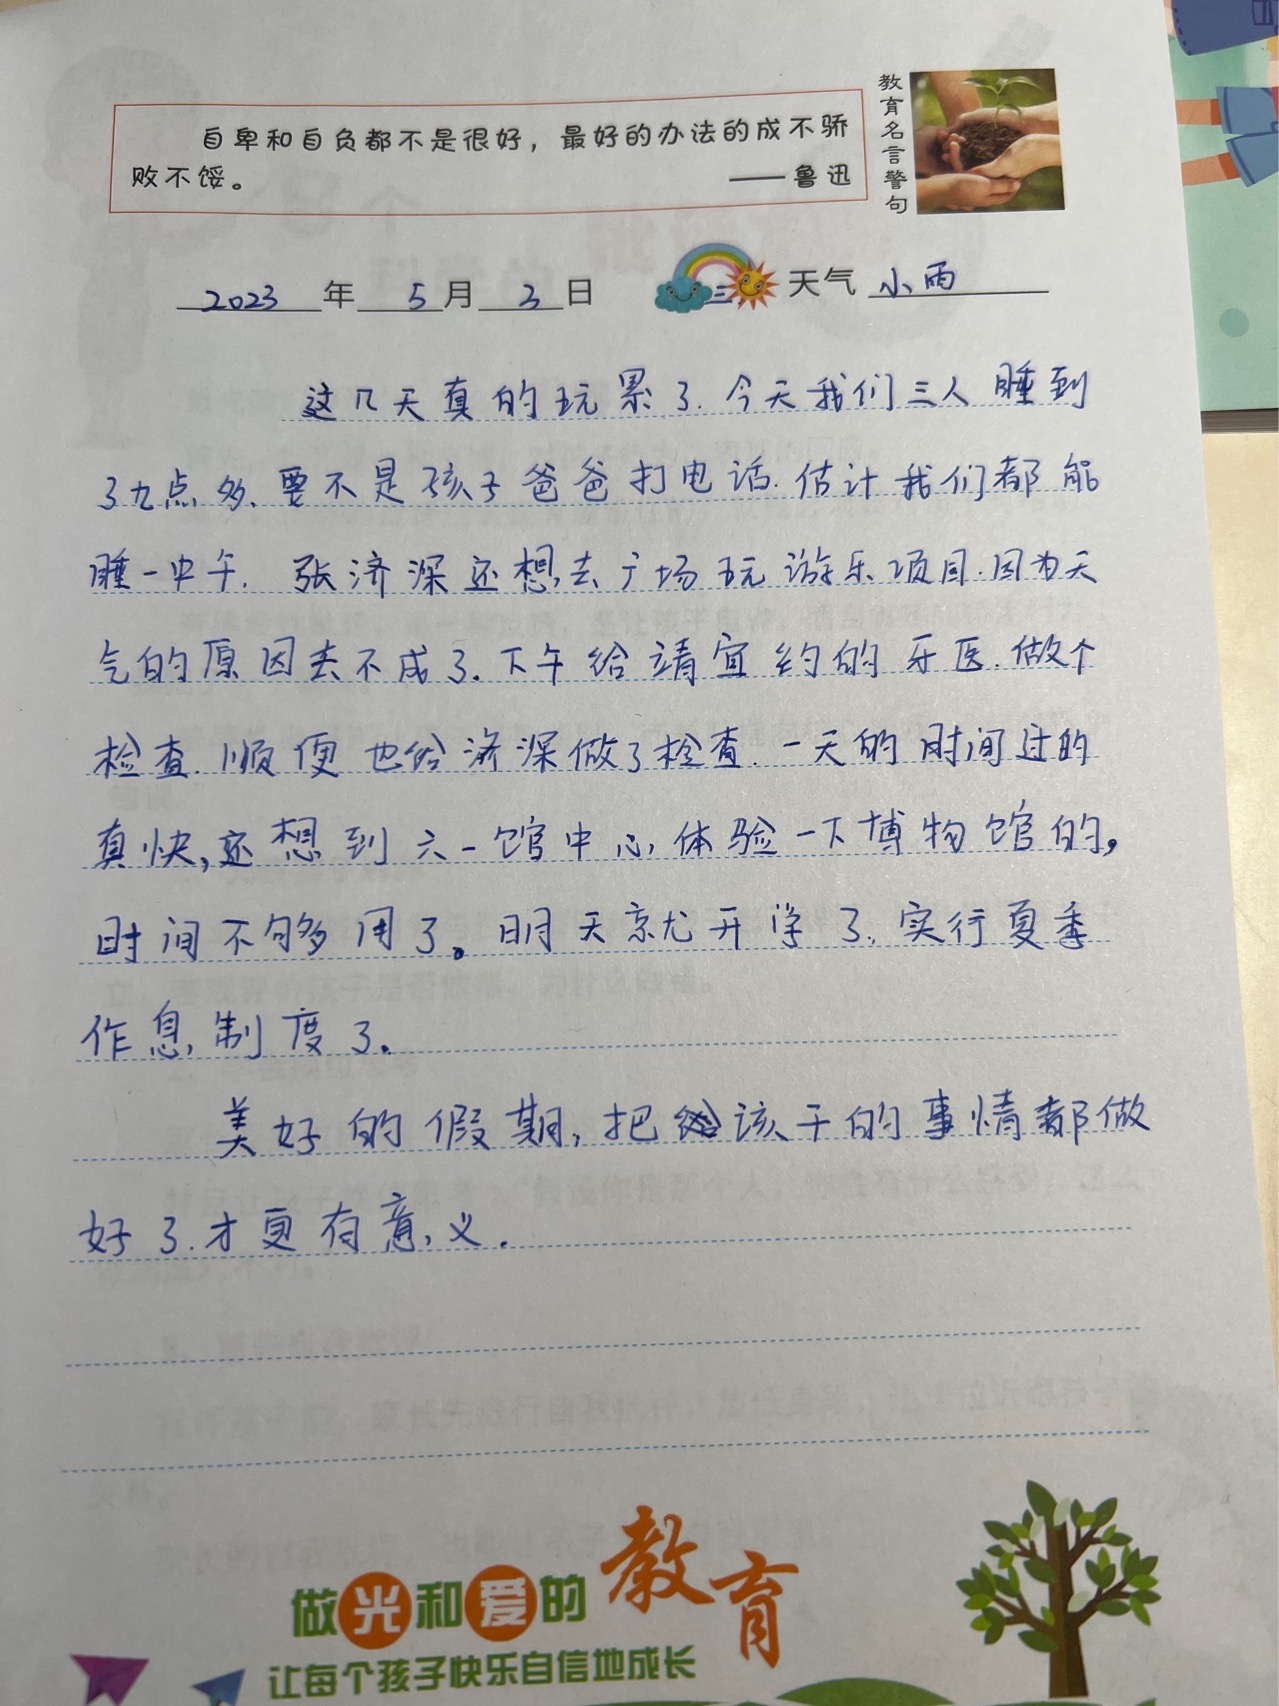 自卑和自负都不是很好，最好的办法的成不骄
败不馁。
——鲁迅
教育名言警句
2023年5月3日 三. 天气 小雨
这几天真的玩累了.今天我们三人睡到
了九点多、要不是孩子爸爸打电话.估计我们都能
睡一中午. 张济深还想去广场玩游乐项目.因为天
气的原因去不成了.下午给靖宜约的牙医.做个
检查.顺便也给济深做了检查.一天的时间过的
真快,还想到六一馆中心体验一下博物馆的,
时间不够用了。明天就开学了.实行夏季
作息制度了.
美好的假期,把该干的事情都做
好了.才更有意义.
做光和爱的教育
让每个孩子快乐自信地成长